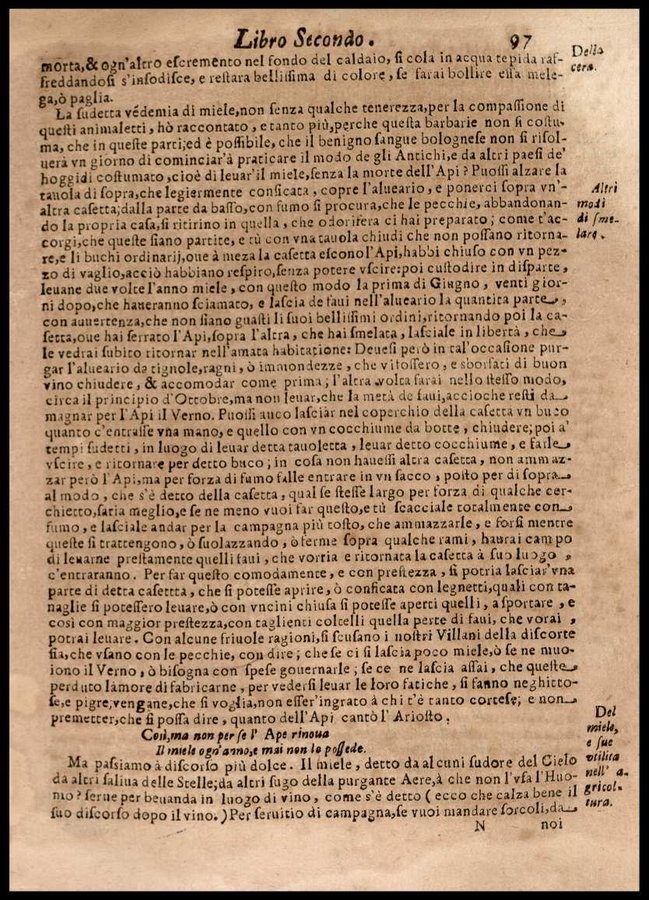 Libro Secondo. 97
morta,& ogn'altro escremento nel fondo del caldaio, si cola in acqua tepida raf-
freddandosi s'insodisce, e restara bellissima di colore, se farai bollire essa mele-
ga,ò paglia.
Della
cera.
La sudetta védemia di miele,non senza qualche tenerezza,per la compassione di
questi animaletti, hò raccontato, e tanto più,perche questa barbarie non si costu-
ma, che in queste parti;ed è possibile, che il benigno sangue bolognese non si risol-
uerà vn giorno di cominciar'à praticare il modo de gli Antichi,e da altri paesi de'
hoggidì costumato,cioè di leuar'il miele,senza la morte dell'Api? Puossi alzare la
tauola di sopra,che legiermente conficata, copre l'alueario, e ponerci sopra vn'-
altra casetta;dalla parte da basso,con fumo si procura,che le pecchie, abbandonan-
do la propria casa,si ritirino in quella, che odorifera ci hai preparato; come t'ac-
corgi,che queste siano partite, e tù con vna tauola chiudi che non possano ritorna-
re,e li buchi ordinarij,oue à meza la casetta escono l'Api,habbi chiuso con vn pez-
zo di vaglio,acciò habbiano respiro,senza potere vscire:poi custodire in disparte,
leuane due volte l'anno miele, con questo modo la prima di Giugno, venti gior-
ni dopo,che haueranno sciamato, e lascia de faui nell'alueario la quantita parte,
con auuertenza,che non siano guasti li suoi bellissimi ordini,ritornando poi la ca-
setta,oue hai ferrato l'Api,sopra l'altra, che hai smelata, lasciale in libertà, che
le vedrai subito ritornar nell'amata habitatione: Deuesi però in tal'occasione pur-
gar l'alueario da tignole,ragni, ò immondezze, che vi fossero, e sborfati di buon
vino chiudere, & accomodar come prima; l'altra volta farai nello stesso modo,
circa il principio d'Ottobre,ma non leuar,che la metà de faui,accioche resti da
magnar per l'Api il Verno. Puossi anco lasciar nel coperchio della casetta vn buco
quanto c'entrasse vna mano, e quello con vn cocchiume da botte, chiudere;poi a'
tempi sudetti, in luogo di leuar detta tauoletta, leuar detto cocchiume, e farle
vscire, e ritornare per detto buco; in cosa non hauessi altra casetta, non ammaz-
zar però l'Api,ma per forza di fumo falle entrare in vn sacco, posto per di sopra
al modo, che s'è detto della casetta, qual se stesse largo per forza di qualche cer-
chietto,saria meglio,e se ne meno vuoi far questo,e tù scacciale totalmente con
fumo, e lasciale andar per la campagna più tosto, che ammazzarle, e forsi mentre
queste si trattengono, ò suolazzando, ò ferme sopra qualche rami, haurai campo
di leuarne prestamente quelli faui, che vorria e ritornata la casetta à suo luogo,
c'entraranno. Per far questo comodamente, e con prestezza, si potria lasciar'vna
parte di detta casettta, che si potesse aprire, ò conficata con legnetti,quali con ta-
naglie si potessero leuare,ò con vncini chiusa si potesse aperti quelli, asportare, e
così con maggior prestezza,con taglienti coltelli quella parte di faui, che vorai,
potrai leuare. Con alcune friuole ragioni,si scusano i nostri Villani della discorte
sia,che vsano con le pecchie, con dire; che se ci si lascia poco miele,ò se ne muo-
iono il Verno, ò bisogna con spese gouernarle; se ce ne lascia assai, che queste
perduto lamore di fabricarne, per vedersi leuar le loro fatiche, si fanno neghitto-
se,e pigre,vengane,che si voglia,non esser'ingrato à chi t'è tanto cortese; e non
premetter,che si possa dire, quanto dell'Api cantò l'Ariosto.
Altri
modi
di sme-
lare.
Così,ma non per se l' Ape rinoua
Il miele ogn'anno,e mai non lo possede.
Ma passiamo à discorso più dolce. Il miele, detto da alcuni sudore del Cielo
da altri saliua delle Stelle;da altri sugo della purgante Aere,à che non l'vsa l'Huo-
mo? serue per beuanda in luogo di vino, come s'è detto (ecco che calza bene il
suo discorso dopo il vino.) Per seruitio di campagna,se vuoi mandare sorcoli,da
Del
miele,
e sue
vtilita
nell' a-
gricol-
tura.
N noi